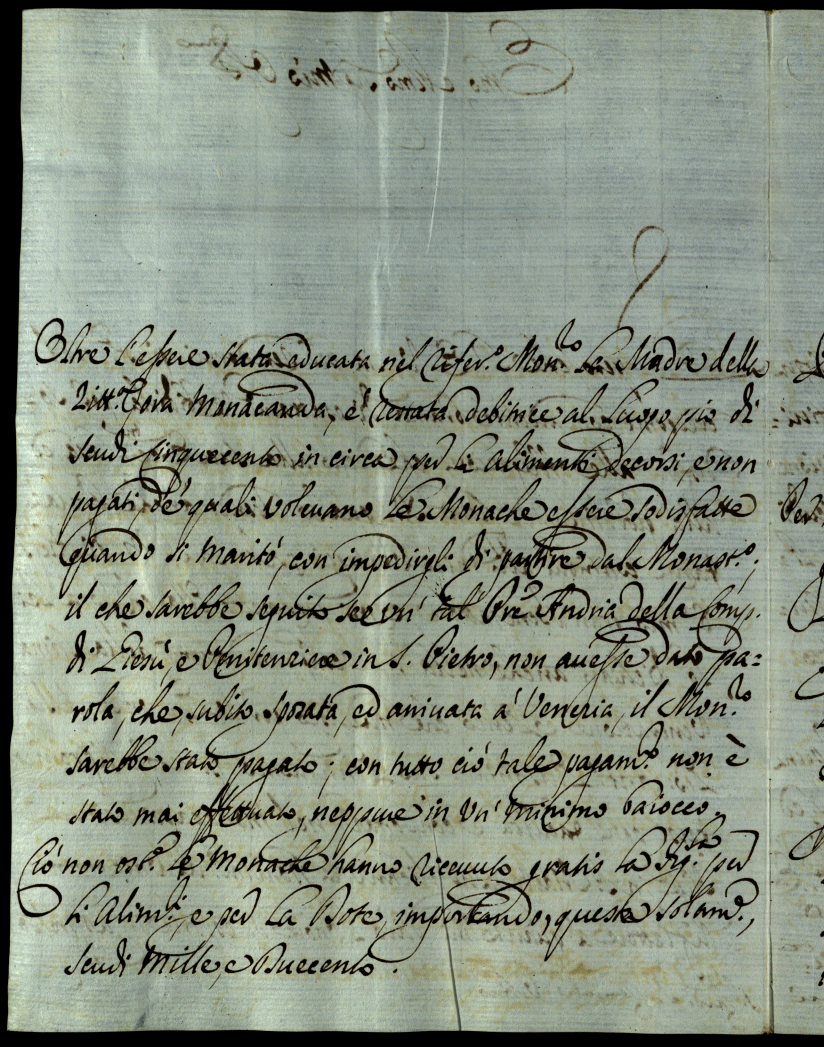 Oltre l'essere stata educata nel rifer.º Mon.ro la Madre della
Zitt.ª ora monacanda, e' restata debitrice al Luogo pio di
scudi cinquecento in circa per li Alimenti decorsi, e non
pagati, de' quali voleuano le Monache essere sodisfatte
quando si maritò, con impedirgli di partire dal Monast.º;
il che sarebbe seguito se un' tal' Pre' Andria della Comp.
di Giesù, e Penitenziere in S. Pietro, non auesse dato pa=
rola, che subito sposata, ed arriuata a' Venezia, il Mon.ro
sarebbe stato pagato; con tutto ciò tale pagam.º non è
stato mai effettuato, neppure in un' minimo baiocco.
Ciò non ost.e le monache hanno riceuuto gratis la Fig.ta per
li Alim.ti, e per la Dote, importando, queste solam.e,
scudi Mille, e Duecento.